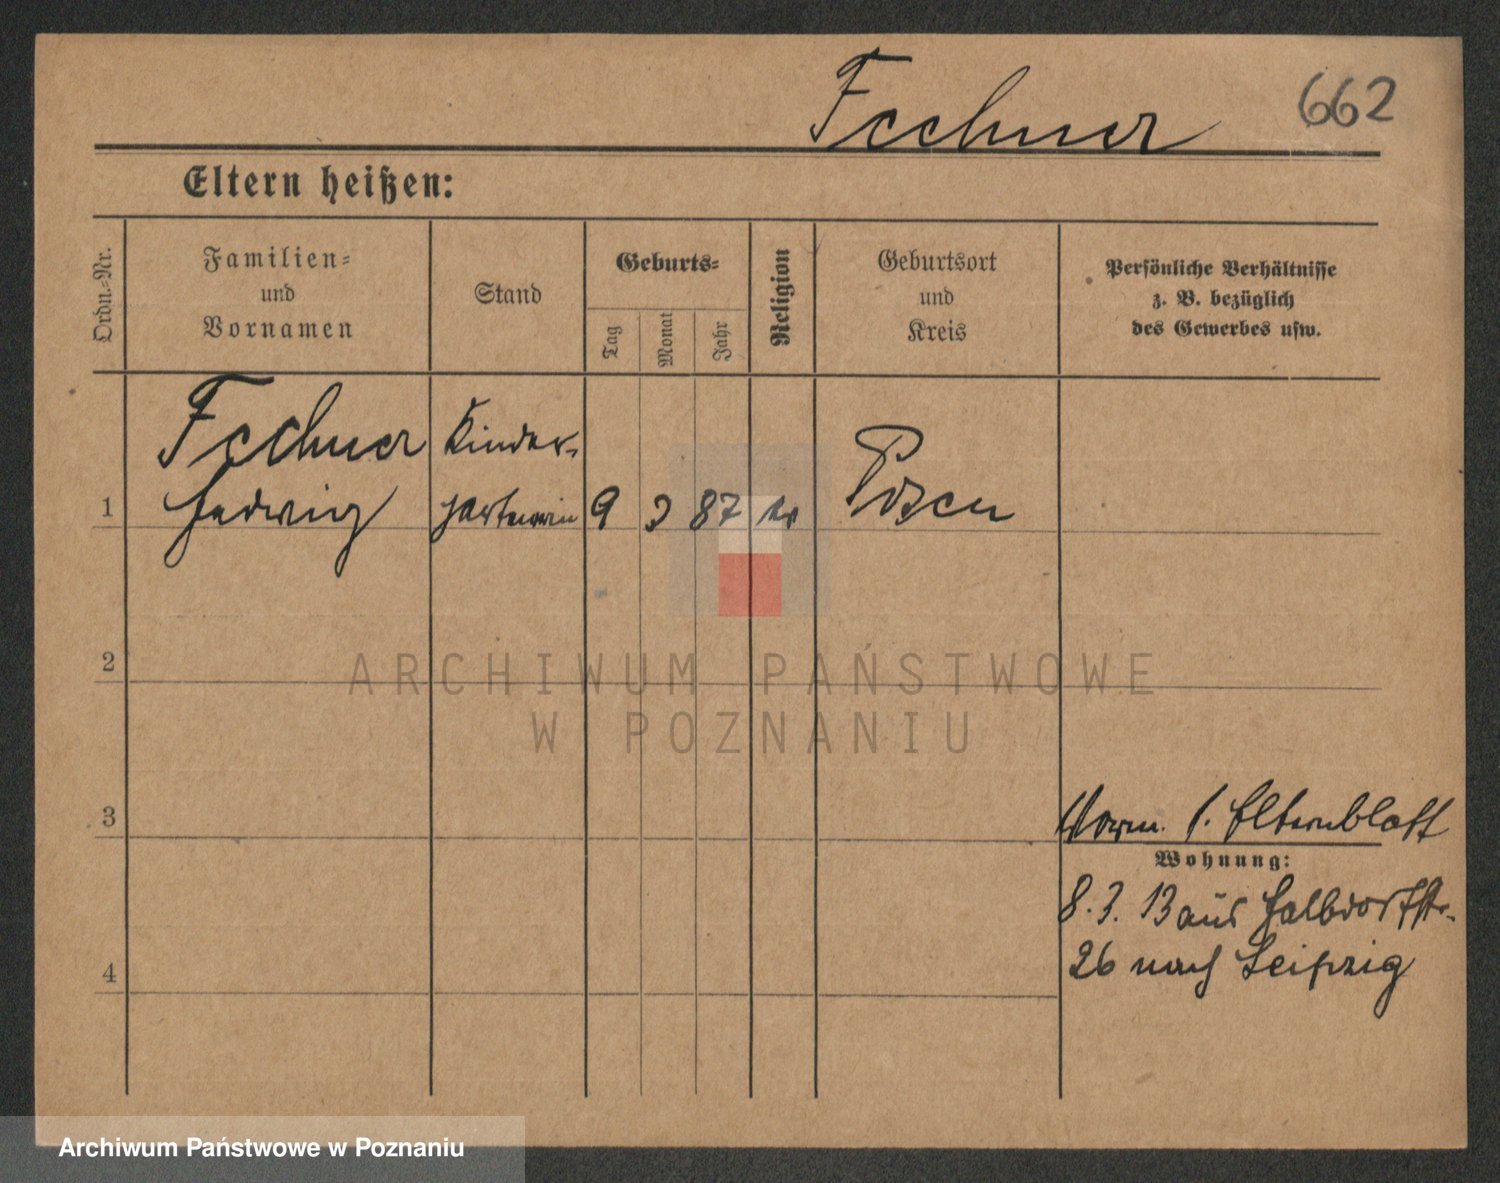 Fechner 662
Eltern heißen:
Ordn.-Nr.
Familien-
und
Vornamen
Stand
Geburts-
Tag
Monat
Jahr
Religion
Geburtsort
und
Kreis
Persönliche Verhältnisse
z. B. bezüglich
des Gewerbes usw.
Fechner Kinder-
1 Hedwig gärtnerin 9 3 87 Posen
2
ARCHIWUM PAŃSTWOWE
W POZNANIU
3
Vorm. s. Elternblatt
Wohnung:
8.3.13 aus Halbdorfstr.
26 nach Leipzig
4
Archiwum Państwowe w Poznaniu